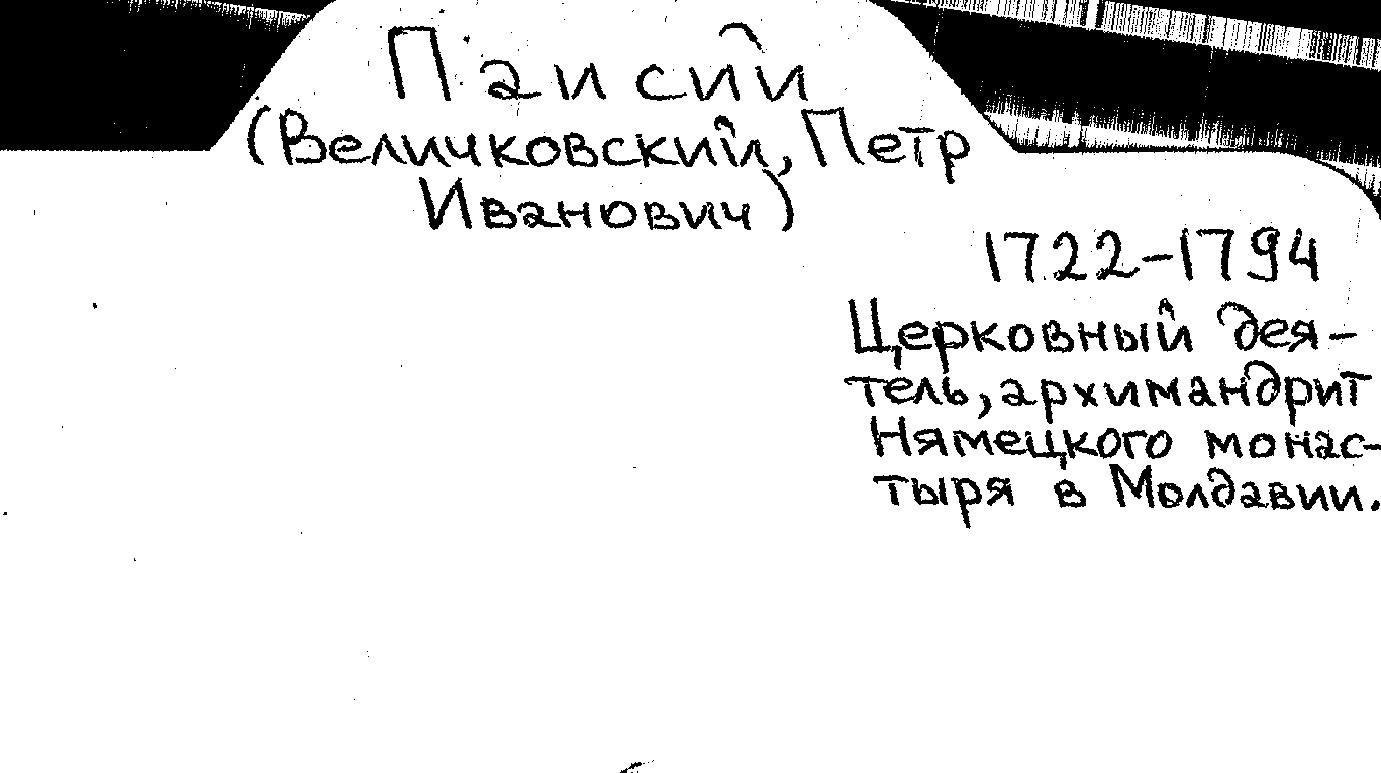 Паисий
(Величковский, Петр
Иванович)
1722-1794
Церковный дея-
тель, архимандрит
Нямецкого монас-
тыря в Молдавии.